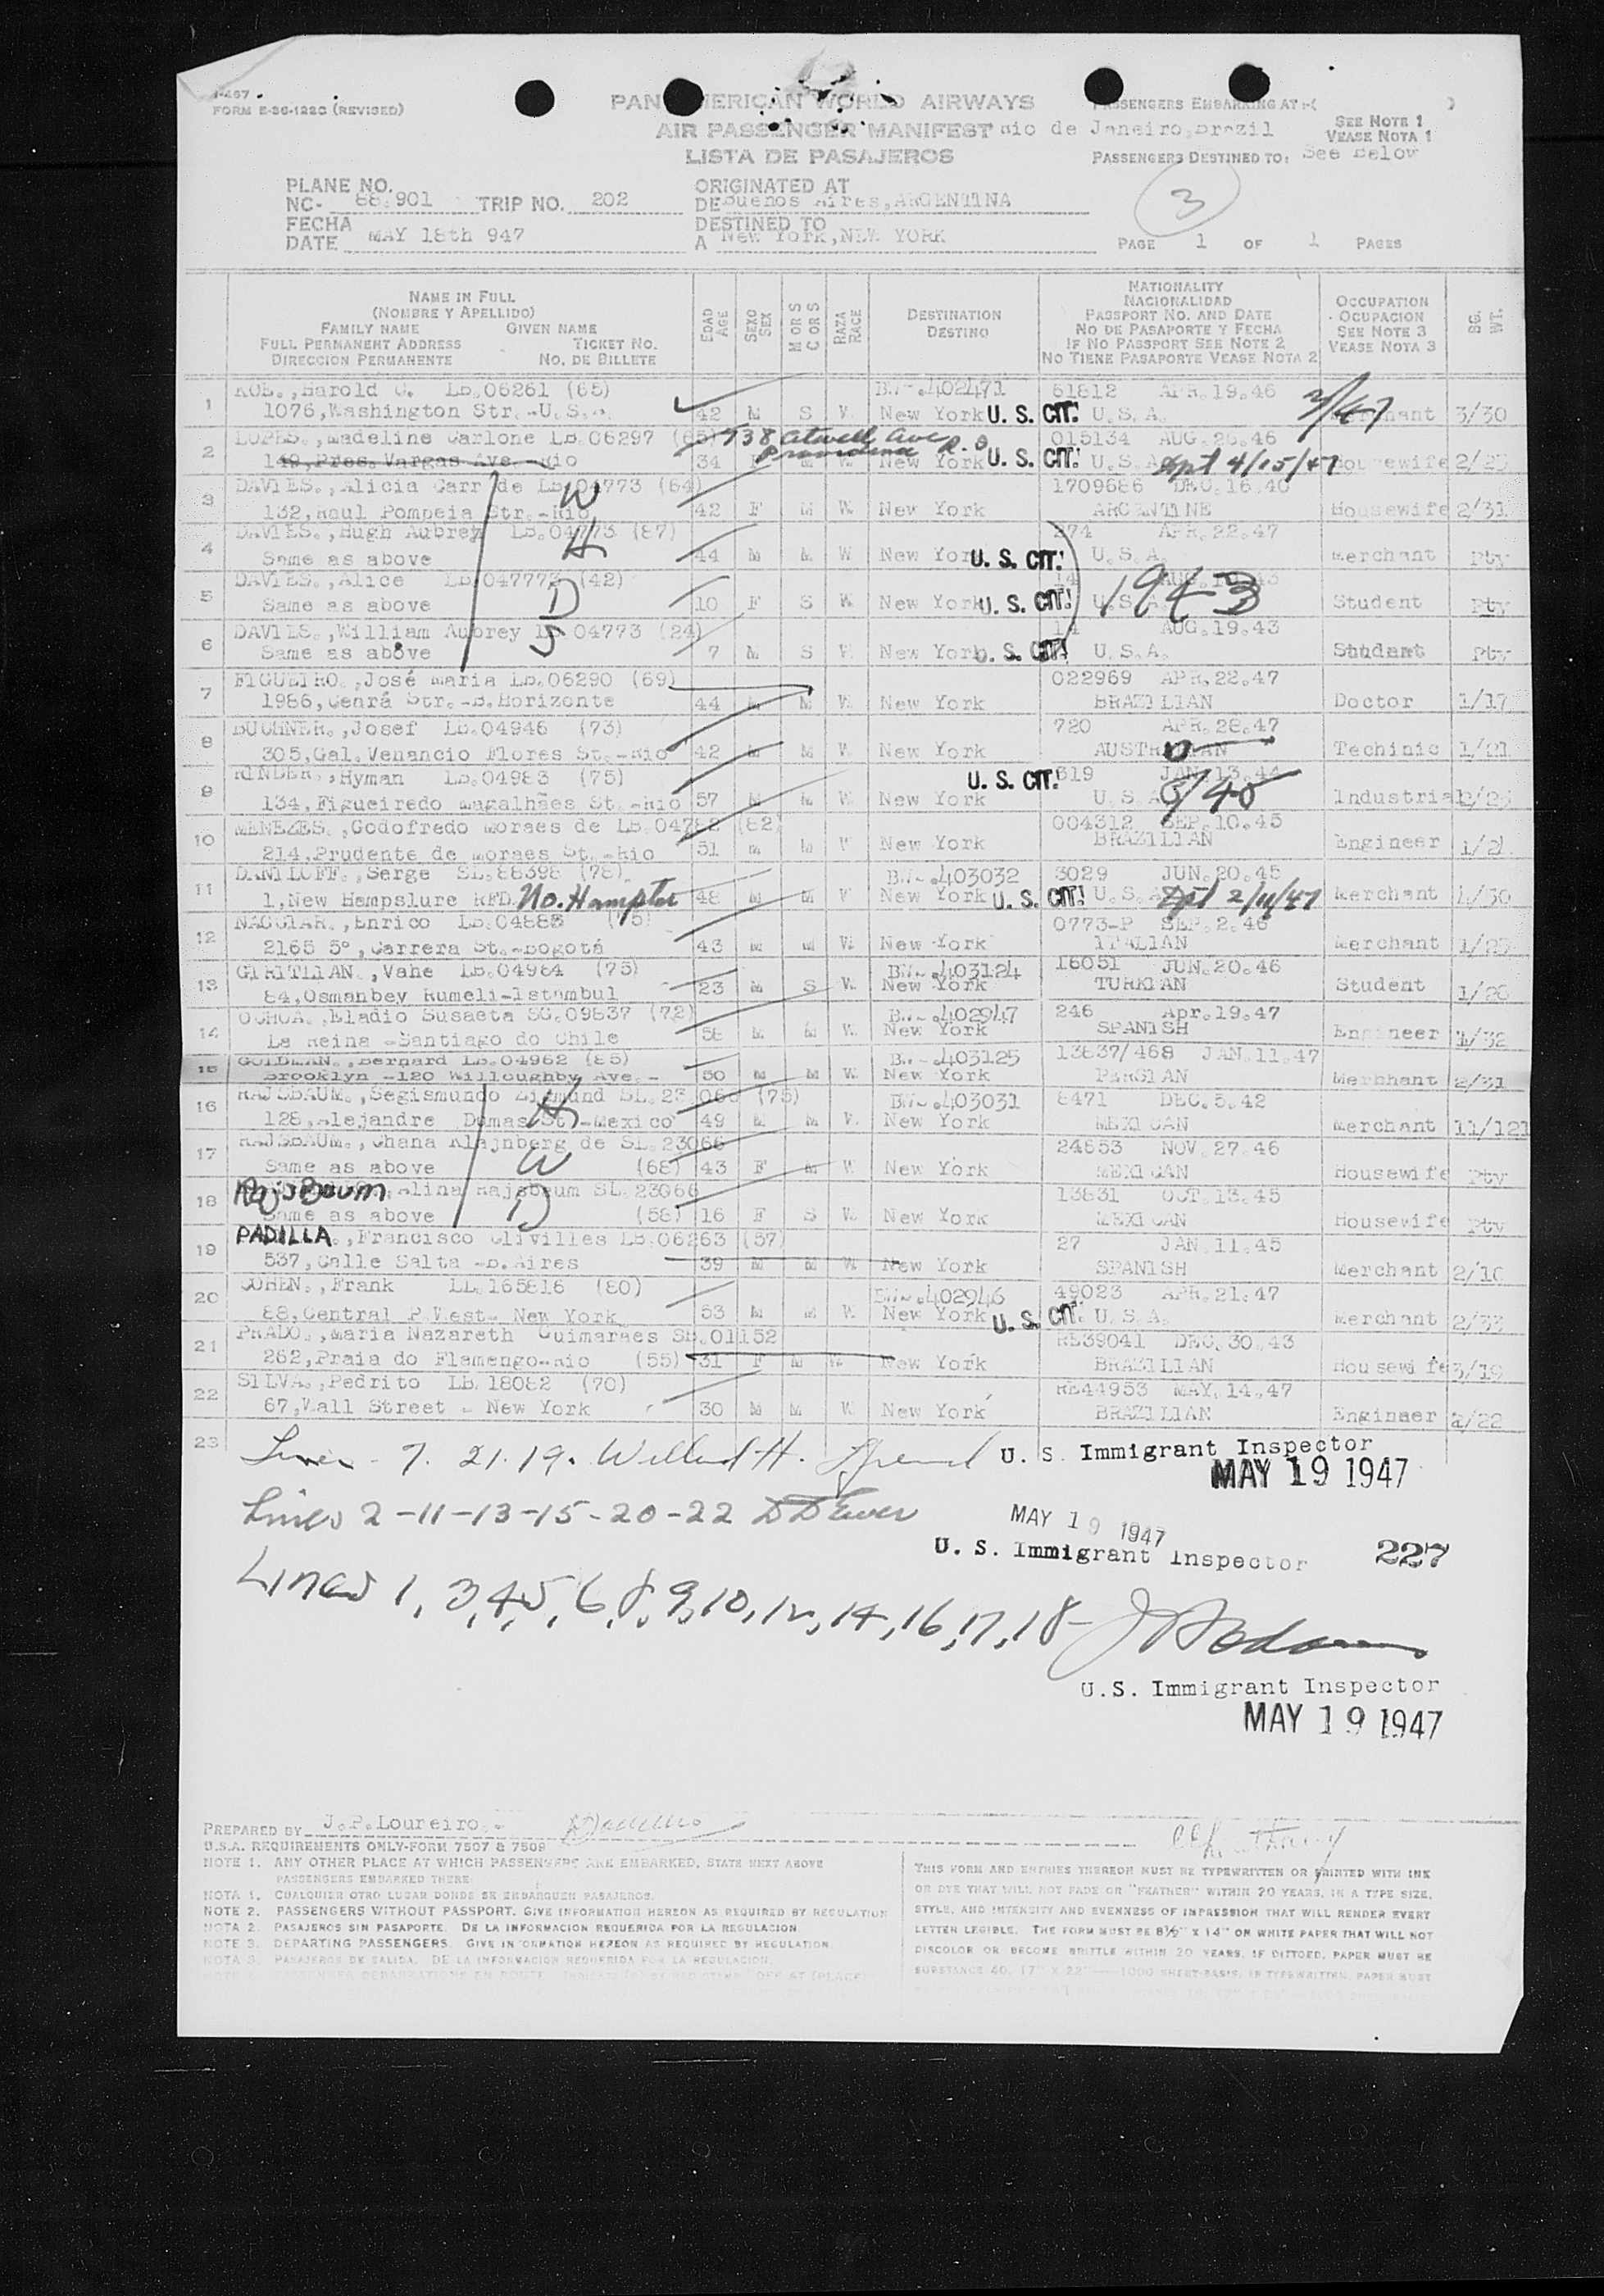 I-467
FORM E-36-122C (REVISED)
PAN AMERICAN WORLD AIRWAYS
AIR PASSENGER MANIFEST
LISTA DE PASAJEROS
PASSENGERS EMBARKING AT:-( )
Rio de Janeiro,Brazil
SEE NOTE 1
VEASE NOTA 1
PASSENGERS DESTINED TO: See Below
3
PLANE NO.
NC- 88.901 TRIP NO. 202
ORIGINATED AT
DE Buenos Aires,ARGENTINA
FECHA
DATE MAY 18th 947
DESTINED TO
A New York,NEW YORK
PAGE 1 OF 1 PAGES
NAME IN FULL
(NOMBRE Y APELLIDO)
FAMILY NAME GIVEN NAME
FULL PERMANENT ADDRESS TICKET NO.
DIRECCION PERMANENTE NO. DE BILLETE
EDAD AGE
SEXO SEX
M OR S C OR S
RAZA RACE
DESTINATION
DESTINO
NATIONALITY
NACIONALIDAD
PASSPORT NO. AND DATE
NO DE PASAPORTE Y FECHA
IF NO PASSPORT SEE NOTE 2
NO TIENE PASAPORTE VEASE NOTA 2
OCCUPATION
OCUPACION
SEE NOTE 3
VEASE NOTA 3
BG. WT.
1 Harold LB.06261 (65) 402471 61812 APR.19.46
1076,Washington Str.-U.S.A. 42 M S W New York U. S. CIT. U.S.A. 3/30
2 LOPES.,Madeline Carlone LB.06297 (65) 738 Atwell Ave 015134 AUG.26.46
149,Pres.Vargas Ave.-Rio Providence R. I. 34 New York U. S. CIT. U.S.A. 4/15/47 Housewife
3 DAVIES.,Alicia Garr de LB.04773 (64) W 1709686 DEC.16.40
132,Raul Pompeia Str.-Rio 42 F M W New York ARGENTINE Housewife 2/31
4 DAVIES.,Hugh Aubrey LB.04773 (87) H 274 APR.22.47
Same as above 44 M M W New York U. S. CIT. U.S.A. Merchant Pty
5 DAVIES.,Alice LB.047773 (42) D 14
Same as above 10 F S W New York U. S. CIT. U.S.A. 1943 Student Pty
6 DAVIES.,William Aubrey LB.04773 (24) S 14 AUG.19.43
Same as above 7 M S W New York U. S. CIT. U.S.A. Student Pty
7 FIGUEIRO.,José Maria LB.06290 (69) 022969 APR.22.47
1986,Ceará Str.-B.Horizonte 44 M M W New York BRAZILIAN Doctor 1/17
8 BUCHNER.,Josef LB.04946 (73) 720 APR.28.47
305,Gal.Venancio Flores St.-Rio 42 M M W New York Techinic 1/21
9 RINDER.,Hyman LB.04983 (75) U. S. CIT. 619
134,Figueiredo Magalhães St.-Rio 57 M M W New York U.S.A. Industrial
10 MENEZES.,Godofredo Moraes de LB.04782 (82) 004312 SEP.10.45
214,Prudente de Moraes St.-Rio 51 M M W New York BRAZILIAN Engineer
11 DANILOFF.,Serge SL.86398 (78) 403032 3029 JUN.20.45
1,New Hampslure RFD. No. Hampton 48 M M W New York U. S. CIT. U.S.A. Dpt 2/11/47 Merchant
12 NAGGIAR.,Enrico LB.04883 (75) 0773-P SEP.2.46
2165 5°,Carrera St.-Bogotá 43 M M W New York ITALIAN Merchant
13 GIRITLIAN.,Vahe LB.04984 (75) 403124 16051 JUN.20.46
84,Osmanbey Rumeli-Istambul 23 M S W New York TURKIAN Student
14 OCHOA.,Eladio Susaeta SG.09837 (72) 402947 246 Apr.19.47
La Reina -Santiago do Chile 58 M M W New York SPANISH Engineer
15 GOLDMAN.,Bernard LB.04962 (85) 403125 13837/468 JAN.11.47
Brooklyn -120 Willoughby Ave.- 50 M M W New York PERSIAN Merchant 2/31
16 RAJSBAUM.,Segismundo Zigmund SL.23.066 (75) H 403031 8471 DEC.5.42
128,Alejandre Dumas St.-Mexico 49 M M W New York MEXICAN Merchant 11/121
17 RAJSBAUM.,Chana Klajnberg de SL.23066 24653 NOV.27.46
Same as above W (68) 43 F M W New York MEXICAN Housewife Pty
18 RAJSBAUM Alina Rajsbaum SL.23066 13831 OCT.13.45
Same as above D (58) 16 F S W New York MEXICAN Housewife Pty
19 PADILLA.,Francisco Olivilles LB.06263 (57) 27 JAN.11.45
537,Calle Salta -B.Aires 39 M M W New York SPANISH Merchant 2/10
20 COHEN.,Frank LL.165816 (80) 402946 49023 APR.21.47
88,Central P.West- New York 53 M M W New York U. S. CIT. U.S.A. Merchant 2/33
21 PRADO.,Maria Nazareth Guimaraes SB.01152 RE39041 DEC.30.43
262,Praia do Flamengo-Rio (55) 31 F M W New York BRAZILIAN Housewife 3/19
22 SILVA.,Pedrito LB.18082 (70) RE44953 MAY.14.47
67,Wall Street - New York 30 M M W New York BRAZILIAN Engineer 2/22
23
Lines - 7. 21. 19. Willard H. U. S. Immigrant Inspector
MAY 19 1947
Lines 2-11-13-15-20-22
MAY 19 1947
U. S. Immigrant Inspector 227
Lines 1, 3,4,5,6,8,9,10,12,14,16,17,18-
U.S. Immigrant Inspector
MAY 19 1947
PREPARED BY J.P.Loureiro.-
U.S.A. REQUIREMENTS ONLY-FORM 7507 & 7509
NOTE 1. ANY OTHER PLACE AT WHICH PASSENGERS ARE EMBARKED, STATE NEXT ABOVE
PASSENGERS EMBARKED THERE.
NOTA 1. CUALQUIER OTRO LUGAR DONDE SE EMBARQUEN PASAJEROS.
NOTE 2. PASSENGERS WITHOUT PASSPORT. GIVE INFORMATION HEREON AS REQUIRED BY REGULATION
NOTA 2. PASAJEROS SIN PASAPORTE. DE LA INFORMACION REQUERIDA POR LA REGULACION.
NOTE 3. DEPARTING PASSENGERS. GIVE INFORMATION HEREON AS REQUIRED BY REGULATION.
NOTA 3. PASAJEROS DE SALIDA. DE LA INFORMACION REQUERIDA POR LA REGULACION.
THIS FORM AND ENTRIES THEREON MUST BE TYPEWRITTEN OR PRINTED WITH INK
OR DYE THAT WILL NOT FADE OR "FEATHER" WITHIN 20 YEARS, IN A TYPE SIZE,
STYLE, AND INTENSITY AND EVENNESS OF IMPRESSION THAT WILL RENDER EVERY
LETTER LEGIBLE. THE FORM MUST BE 8½" X 14" ON WHITE PAPER THAT WILL NOT
DISCOLOR OR BECOME BRITTLE WITHIN 20 YEARS. IF DITTOED, PAPER MUST BE
SUBSTANCE 40, 17" X 22"—1000 SHEET-BASIS. IF TYPEWRITTEN, PAPER MUST